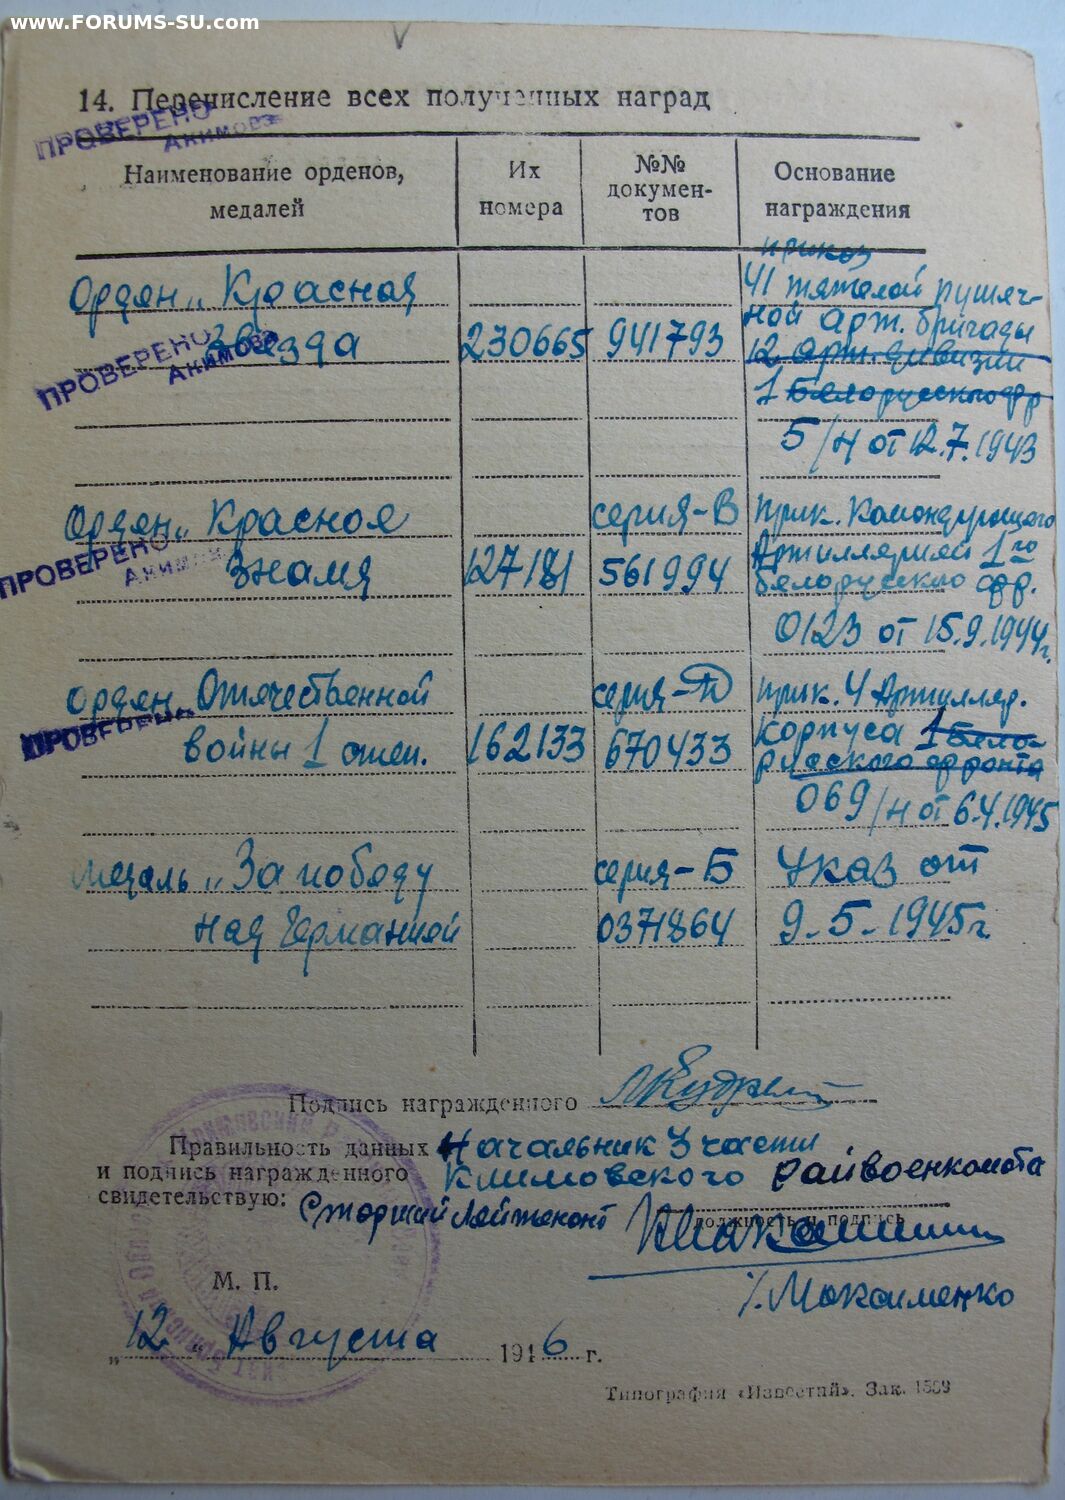 www.FORUMS-SU.com
14. Перечисление всех полученных наград
ПРОВЕРЕНО
Акимова
Наименование орденов, медалей
Их номера
№№ документов
Основание награждения
приказ
Орден „Красная
41 тяжелой пушеч-
ной арт. бригады
ПРОВЕРЕНО
Акимова
Звезда
230665
941793
12 арт. дивизии
1 Белорусского фр
5/н от 12.7.1943
Орден „Красное
серия-В
прик. Командующего
ПРОВЕРЕНО
Знамя
127181
561994
Артиллерией 1го
белорусского фр.
0123 от 15.9.1944г.
Орден Отечественной
серия-
прик. 4 Артиллер.
ПРОВЕРЕНО
войны 1 степ.
162133
670433
корпуса 1 Бело-
русского фронта
069/н от 6.4.1945
Медаль „За победу
серия-Б
Указ от
над Германией
0371864
9-5-1945г.
Подпись награжденного
Правильность данных Начальник 3 части
и подпись награжденного Климовского райвоенкомата
свидетельствую: Старший Лейтенант
должность и подпись
М. П.
/.Максименко
„12„ Августа 1946 г.
Типография «Известий». Зак. 1509